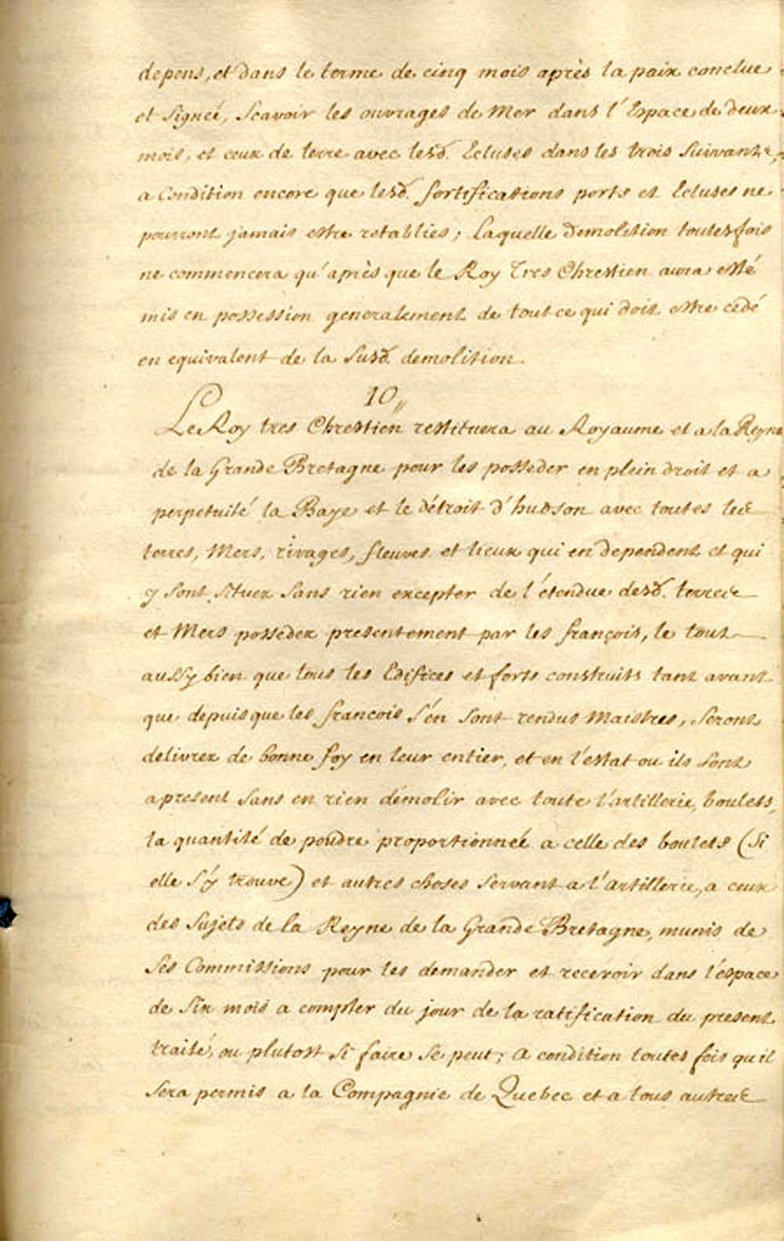 depens, et dans le terme de cinq mois après la paix conclue
et signeé, scavoir les ouvrages de Mer dans l'Espace de deux
mois, et ceux de terre avec lesd. Ecluses dans les trois suivants,
a Condition encore que lesd. fortifications ports et Ecluses ne
pourront jamais estre retablies; Laquelle demolition toutesfois
ne commencera qu'après que le Roy Tres Chrestien aura esté
mis en possession generalement de tout ce qui doit estre cedé
en equivalent de la susd. demolition.
10
Le Roy tres Chrestien restituera au Royaume et a la Reyne
de la Grande Bretagne pour les posseder en plein droit et a
perpetuité la Baye et le détroit d'hudson avec toutes les
terres, Mers, rivages, fleuves et lieux qui en dependent et qui
y sont situez sans rien excepter de l'étendue desd. terres
et Mers possedez presentement par les françois, le tout
aussy bien que tous les Edifices et forts construits tant avant
que depuis que les francois s'en sont rendus Maistres, seront
delivrez de bonne foy en leur entier, et en l'estat ou ils sont
apresent sans en rien démolir avec toute l'artillerie, boulets,
la quantité de poudre proportionneé a celle des boulets (si
elle s'y trouve) et autres choses servant a l'artillerie, a ceux
des sujets de la Reyne de la Grande Bretagne, munis de
ses Commissions pour les demander et recevoir dans l'espace
de six mois a compter du jour de la ratification du present
traité, ou plutost si faire se peut; a condition toutes fois qu'il
sera permis a la Compagnie de Quebec et a tous autres